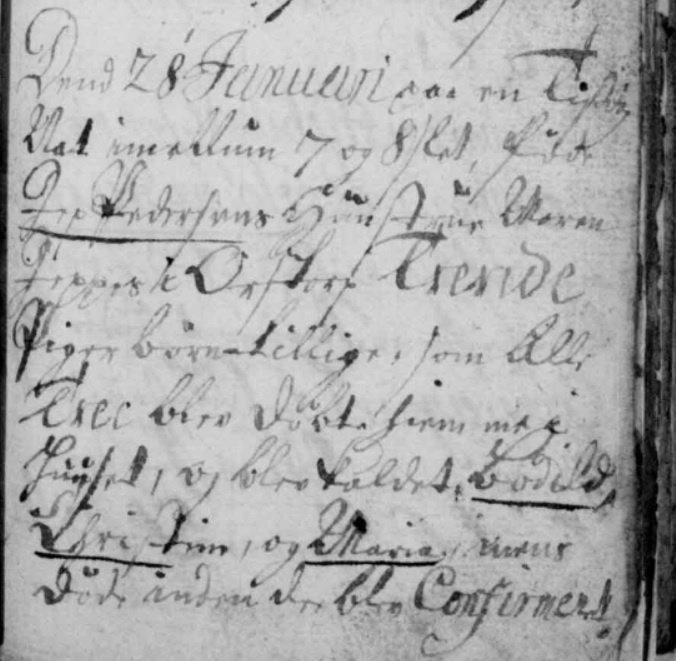 Dend 28 Januari paa en Tisdag
Nat imellum 7 og 8 slet, føde
Jep Pedersens Hüustrue Maren
Jeppes i Ørstorp Trende
Piger børn tillige, som Alle
Tree blev døbte hiemme i
Huuset, og blev kaldet, Bodild,
Christine, og Maria, mens
døde inden de blev Confirmert.